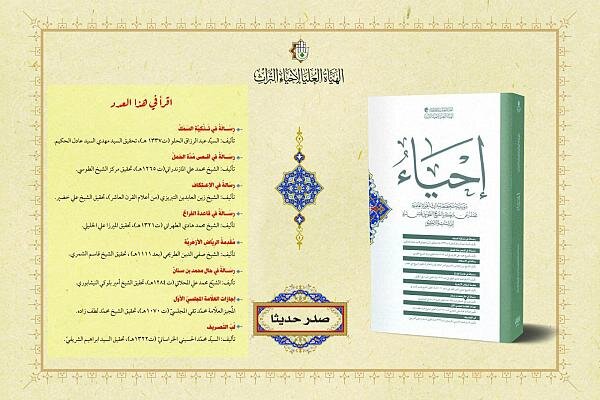 الهيأة العليا لإحياء التراث
اقرأ في هذا العدد
رسالةٌ في تذكية السمك
تأليف: السيّد عبد الرزاق الحلو (ت١٣٣٧هـ)، تحقيق السيد مهدي السيد عادل الحكيم.
رسالةٌ في أقصى مدّة الحمل
تأليف: الشيخ محمد علي المازندراني(ت١٢٦٥هـ)، تحقيق مركز الشيخ الطوسي.
رسالة في الاعتكاف
تأليف: الشيخ زين العابدين التبريزي (من أعلام القرن العاشر)، تحقيق الشيخ علي خضير.
رسالة في قاعدة الفراغ
تأليف: الشيخ محمد هادي الطهراني (ت١٣٢١هـ)، تحقيق الميرزا علي الجليلي.
مقدمة الرياض الأزهرية
تأليف: الشيخ صفي الدين الطريحي (بعد ١١١١هـ)، تحقيق الشيخ قاسم الشمري.
رسالة في حال محمد بن سنان
تأليف: الشيخ محمد علي المحلاتي (ت١٢٨٤هـ)، تحقيق الشيخ أمير بلوكي النيشابوري.
إجازات العلامة المجلسيّ الأول
المُجيز العلامة محمد تقي المجلسيّ (ت١٠٧٠هـ)، تحقيق الشيخ محمد لطف زاده.
لبّ التصريف
تأليف: السيّد محمد الحسيني الخراساني (ت١٣٢٢هـ)، تحقيق السيد ابراهيم الشريفي.
صدر حديثا
إحياء